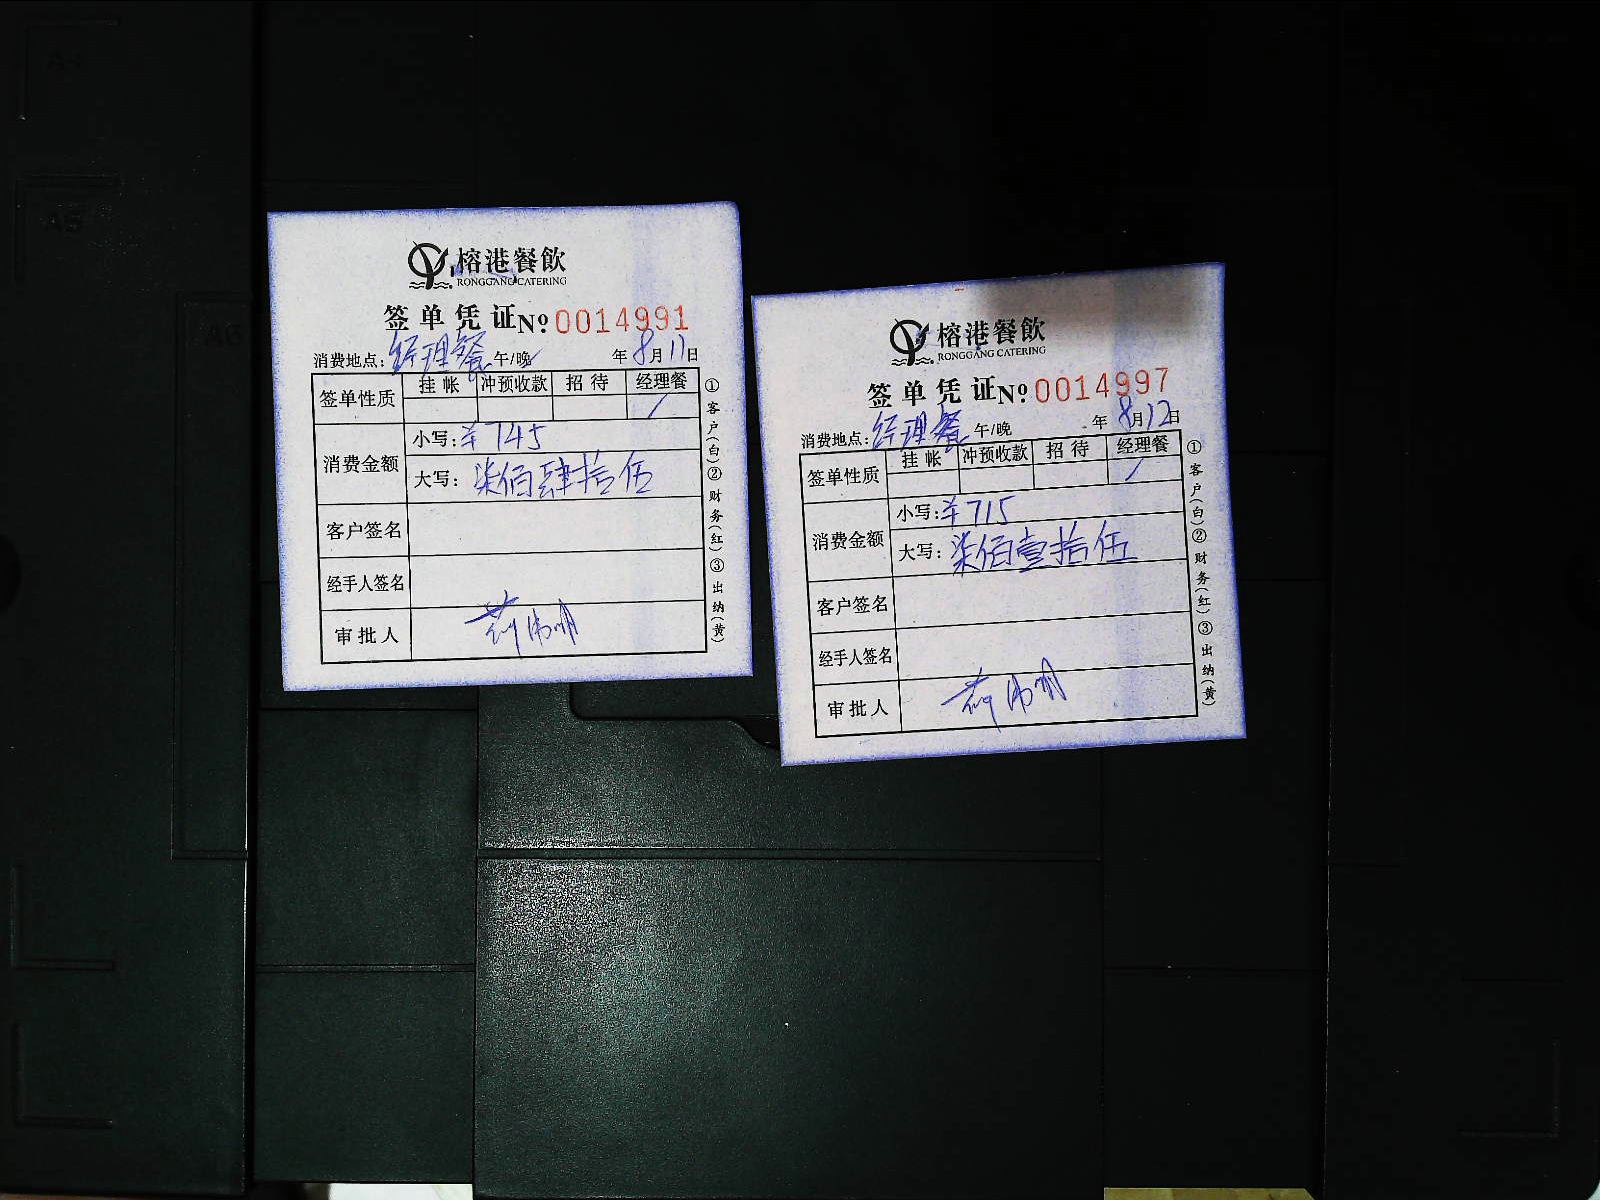 榕港餐飲
RONGGANG CATERING
签单凭证 №0014991
消费地点:经理餐 午/晚 年8月11日
签单性质 挂帐 冲预收款 招待 经理餐
消费金额 小写:¥745
大写:柒佰肆拾伍
客户签名
经手人签名
审批人
①客户(白)②财务(红)③出纳(黄)
榕港餐飲
RONGGANG CATERING
签单凭证 №0014997
消费地点:经理餐 午/晚 年8月12日
签单性质 挂帐 冲预收款 招待 经理餐
消费金额 小写:¥715
大写:柒佰壹拾伍
客户签名
经手人签名
审批人
①客户(白)②财务(红)③出纳(黄)